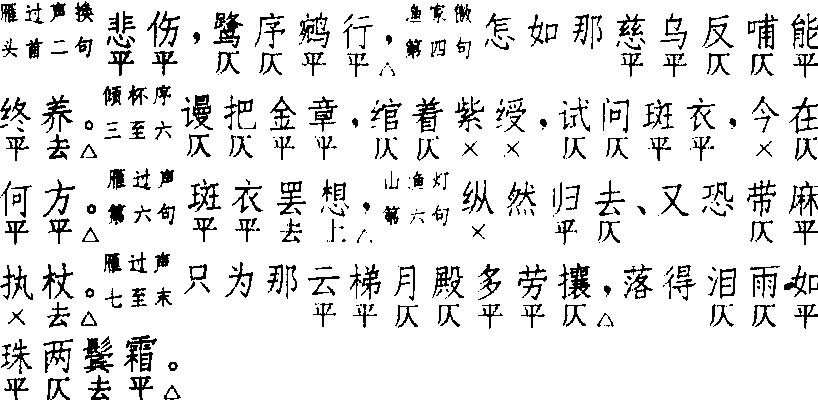 雁过声换头首二句 悲伤，鹭序鹓行，渔家傲第四句 怎如那慈乌反哺能
平平仄仄平平△平平仄仄平
终养。倾杯序三至六 谩把金章，绾着紫绶，试问斑衣，今在
平去△仄仄平平仄仄××仄仄平平×仄
何方。雁过声第六句 斑衣罢想，山渔灯第六句 纵然归去、又恐带麻
平平△平平去上△×平仄仄平
执杖。雁过声七至末 只为那云梯月殿多劳攘，落得泪雨如
×去△平平仄仄平平仄△仄仄平
珠两鬓霜。
平仄去平△